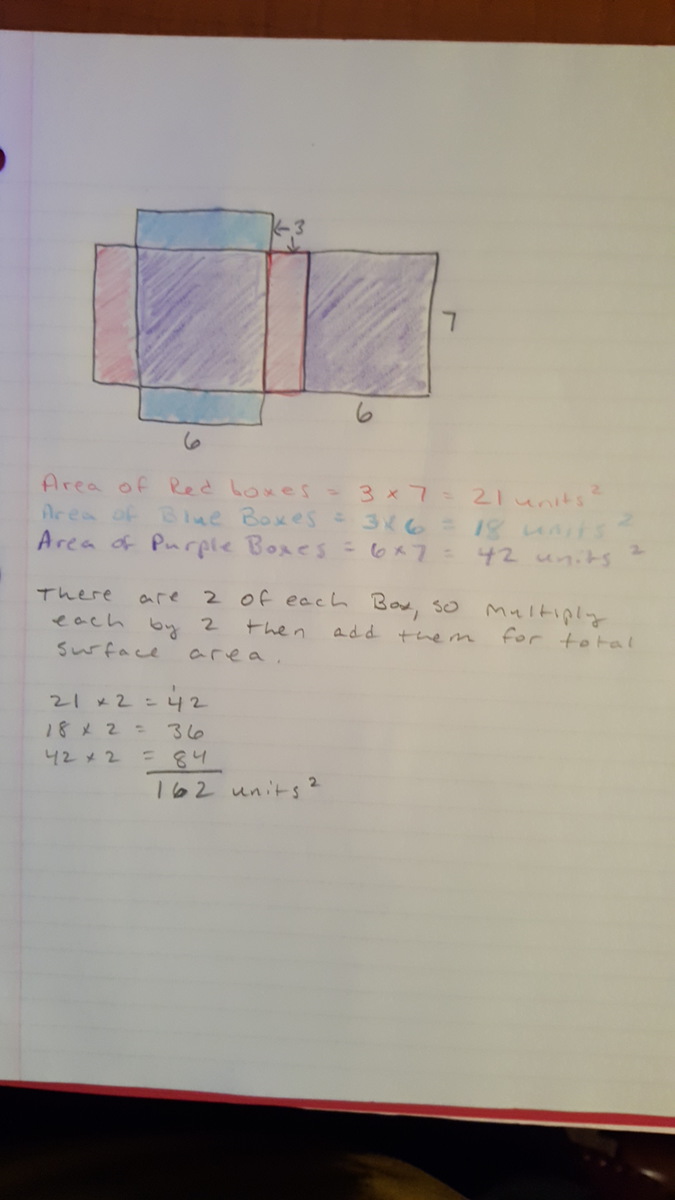 ←3
↓
7
6
6
Area of Red boxes = 3 × 7 = 21 units²
Area of Blue Boxes = 3×6 = 18 units²
Area of Purple Boxes = 6×7 = 42 units²
There are 2 of each Box, so multiply
each by 2 then add them for total
surface area.
21 × 2 = 42
18 × 2 = 36
42 × 2 = 84
162 units²